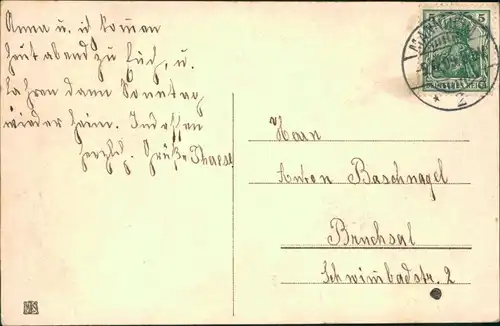 Anna u. ich kommen
heut abend zu Euch, u.
fahren dann Sonntag
wieder heim. Indessen
herzlch. Grüße
Herrn
Anton Baschnagel
Bruchsal
Schwimbadstr. 2
5 5
DEUTSCHES REICH
2